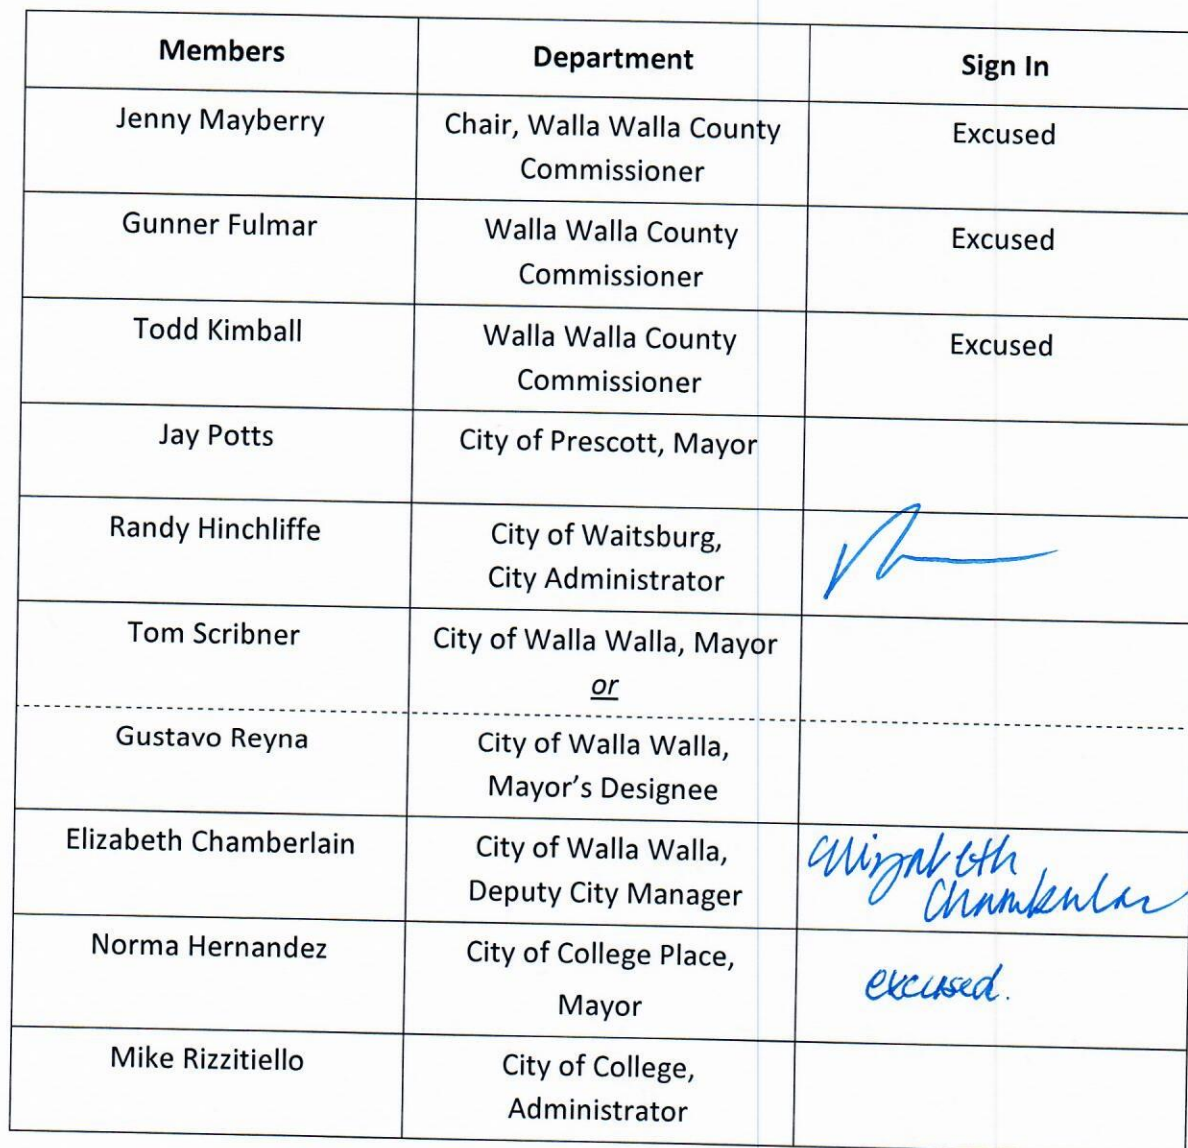 Members Department Sign In
Jenny Mayberry Chair, Walla Walla County Excused
Commissioner
Gunner Fulmar Walla Walla County Excused
Commissioner
Todd Kimball Walla Walla County Excused
Commissioner
Jay Potts City of Prescott, Mayor
Randy Hinchliffe City of Waitsburg,
City Administrator
Tom Scribner City of Walla Walla, Mayor
or
Gustavo Reyna City of Walla Walla,
Mayor's Designee
Elizabeth Chamberlain City of Walla Walla, Elizabeth
Deputy City Manager Chamberlain
Norma Hernandez City of College Place,
Mayor excused.
Mike Rizzitiello City of College,
Administrator